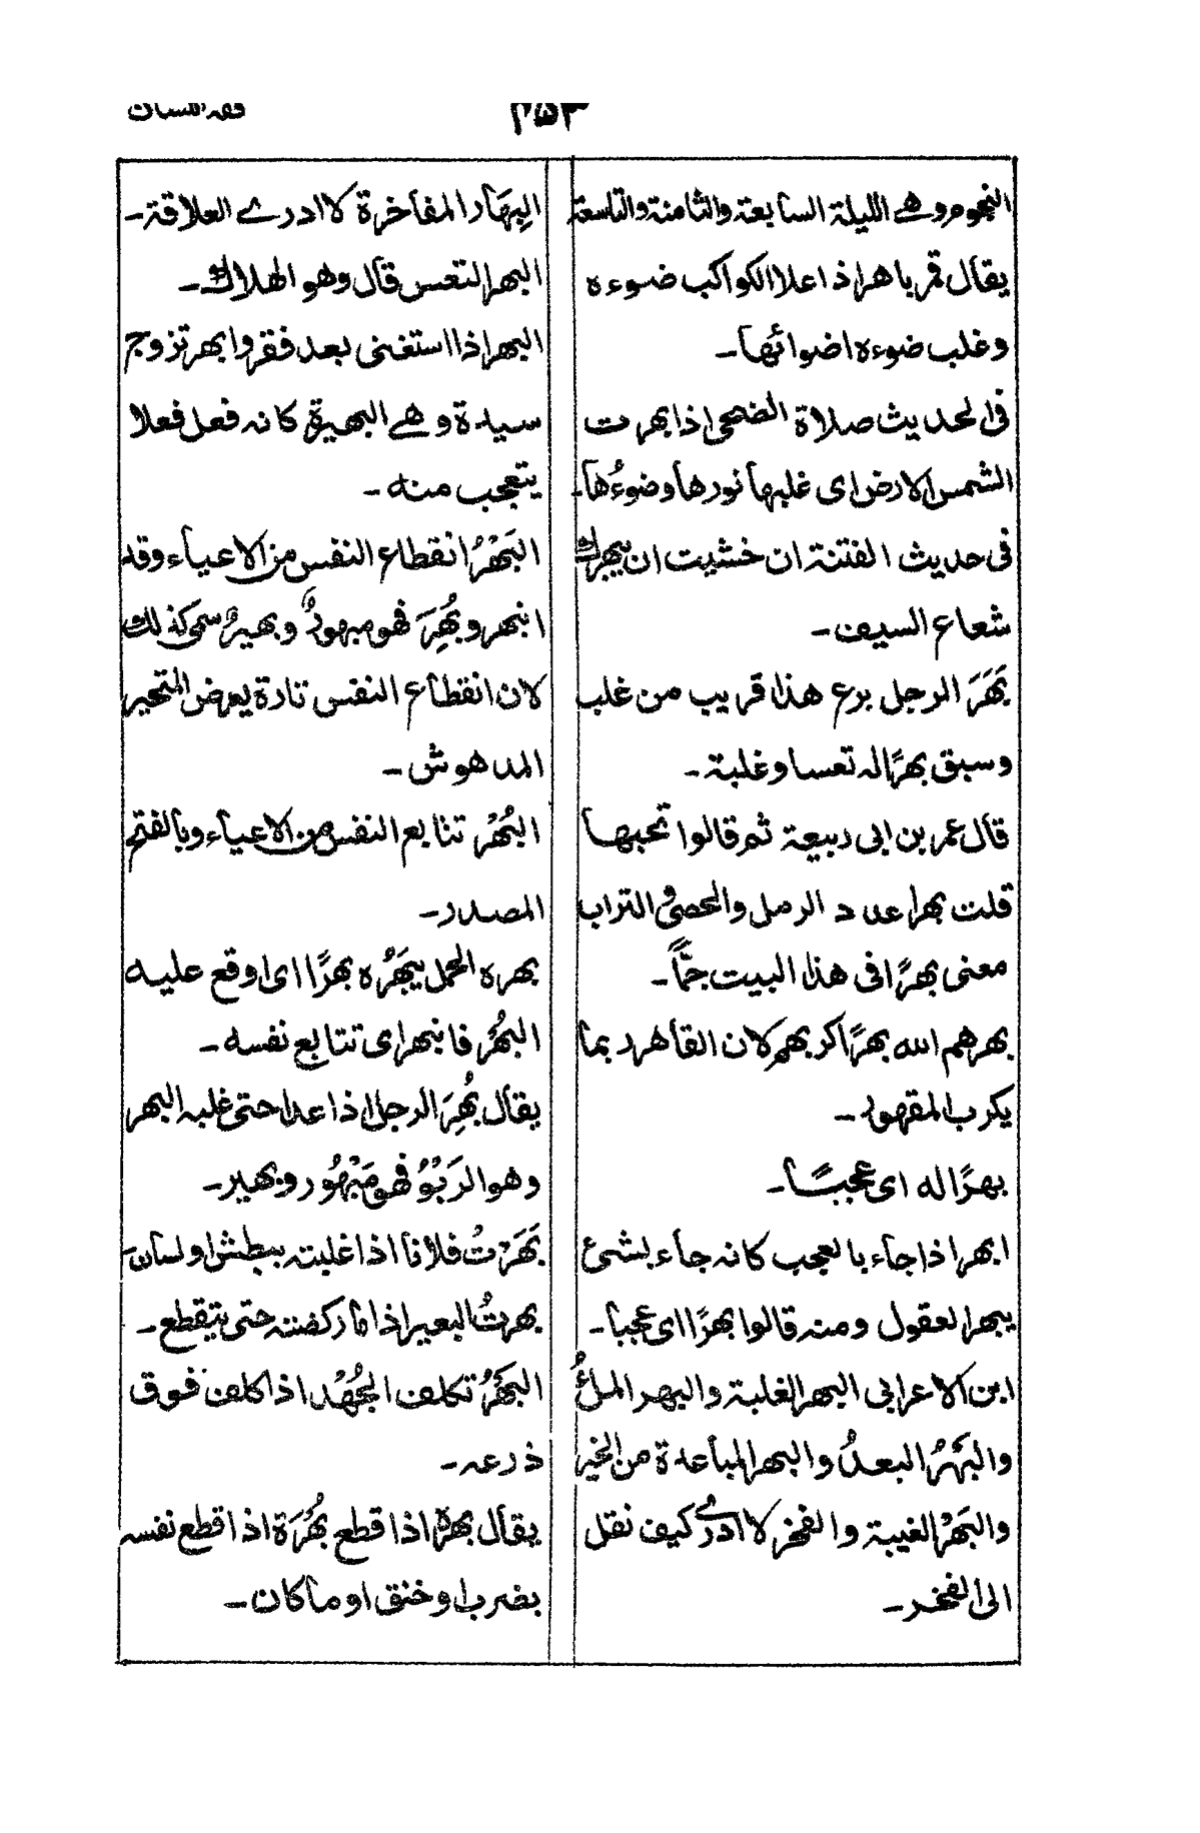 فقہ اللسان
۴۵۳
النجوم وهے الليلة السابعة والثامنة والتاسعة
يقال قمر باهر اذا علا الكواكب ضوءه
وغلب ضوءه اضوائها۔
فی الحديث صلاة الضحی اذا بهرت
الشمس الارض ای غلبها نورها وضوءُها۔
فی حديث الفتنة ان خشيت ان يبهرك
شعاع السيف۔
بَهَرَ الرجل برع هذا قريب من غلب
وسبق بهرًا له تعسا وغلبة۔
قال عمر بن ابی ربيعة ثم قالوا تحبها
قلت بهرا عدد الرمل والحصی والتراب
معنی بهرًا فی هذا البيت جمًّا۔
بهرهم الله بهرًا كربهم لان القاهر ربما
يكرب المقهور۔
بهرًا له ای عجبًا۔
ابهر اذا جاء بالعجب كانه جاء بشئ
يبهر العقول ومنه قالوا بهرًا ای عجبا۔
ابن الاعرابی البهر الغلبة والبهر الملأُ
والبَهْرُ البعدُ والبهر المباعدة من الخير
والبَهْرُ الغيبة والفخر لا ادرے كيف نقل
الی الفخر۔
البِهَار المفاخرة لا ادرے العلاقة۔
البهر التعس قال وهو الهلاك۔
البهر اذا استغنی بعد فقر وابهر تزوج
سيدة وهے البهيرة كانه فعل فعلا
يتعجب منه۔
البَهْرُ انقطاع النفس من الاعياء وقد
انبهر وبُهِرَ فهو مبهورٌ وبهيرٌ سمی كذلك
لان انقطاع النفس تارة يعرض المتحير
المدهوش۔
البُهْرُ تتابع النفس من الاعياء وبالفتح
المصدر۔
بهره الحمل يَبْهَرُه بهرًا ای اوقع عليه
البُهْرُ فانبهر ای تتابع نفسه۔
يقال بُهِرَ الرجل اذا عدا حتی غلبه البهر
وهو الرَبْوُ فهو مَبْهُور وبهير۔
بَهَرْتُ فلانا اذا غلبته ببطش او لسان
بهرتُ البعير اذا ما ركضته حتی ينقطع۔
البَهْرُ تكلف الجُهْد اذا كلف فوق
ذرعه۔
يقال بهره اذا قطع بُهْرَة اذا قطع نفسه
بضرب او خنق او ما كان۔